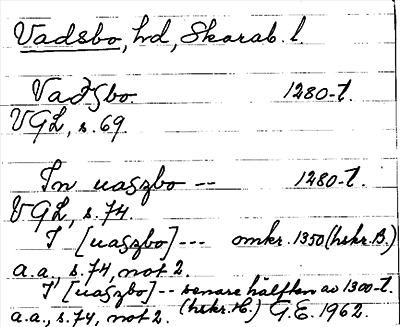 Vadsbo, hd, Skarab. l.
Vaðzbo. 1280-t.
VGL, s. 69.
In uaszbo -- 1280-t.
VGL, s. 74.
I [uaszbo] --- omkr. 1350 (hskr. B.)
a.a., s. 74, not 2.
I [uaszbo] -- senare hälften av 1300-t.
a.a., s. 74, not 2. (hskr. H.) G.E. 1962.